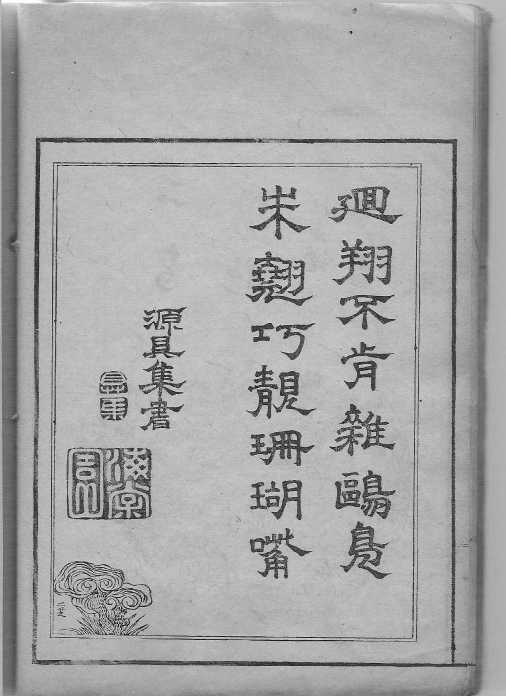 廻翔不肯雜鷗鳧
朱巧靚珊瑚嘴
源具集書
海棠園